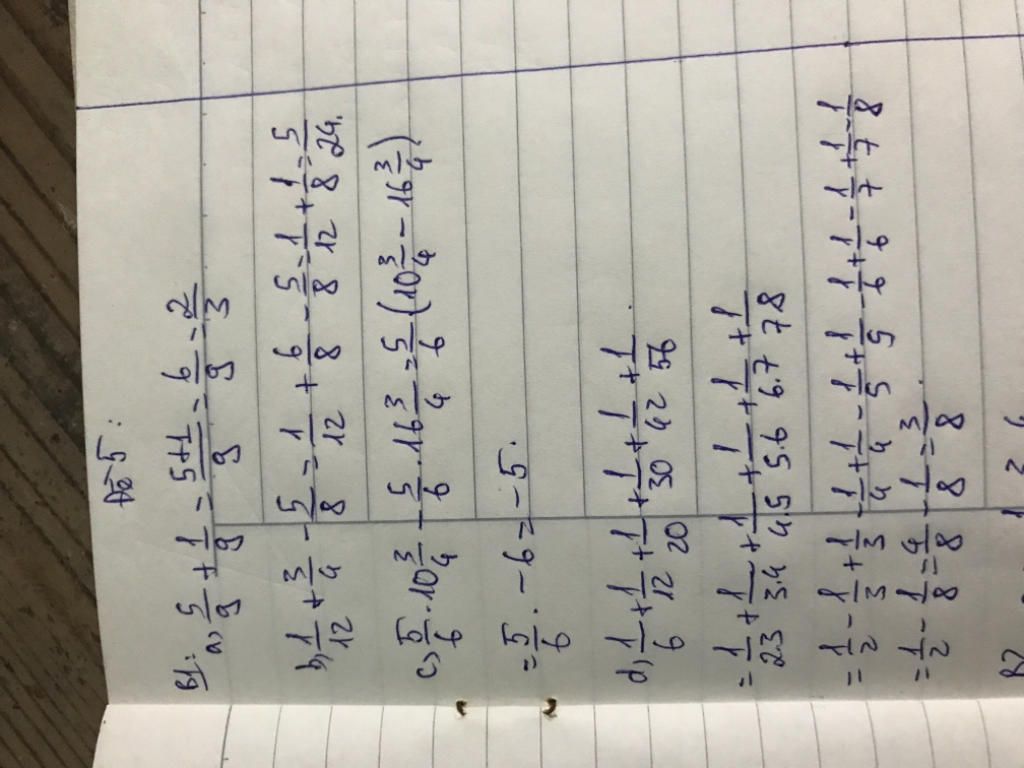 Đề 5:
B1:
a, 5/9 + 1/9 = 5+1/9 = 6/9 = 2/3
b, 1/12 + 3/4 - 5/8 = 1/12 + 6/8 - 5/8 = 1/12 + 1/8 = 5/24.
c, 5/6 . 10 3/4 - 5/6 . 16 3/4 = 5/6 (10 3/4 - 16 3/4)
= 5/6 . -6 = -5.
d, 1/6 + 1/12 + 1/20 + 1/30 + 1/42 + 1/56.
= 1/2.3 + 1/3.4 + 1/4.5 + 1/5.6 + 1/6.7 + 1/7.8
= 1/2 - 1/3 + 1/3 - 1/4 + 1/4 - 1/5 + 1/5 - 1/6 + 1/6 - 1/7 + 1/7 - 1/8
= 1/2 - 1/8 = 4/8 - 1/8 = 3/8.
B2